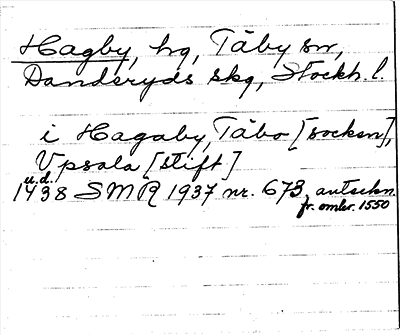 Hagby, hg, Täby sn,
Danderyds skg, Stockh. l.
i Hagaby, Täbo [socken],
Vpsala [stift]
u.d.
1438 SMR 1937 nr. 673, anteckn.
fr. omkr. 1550